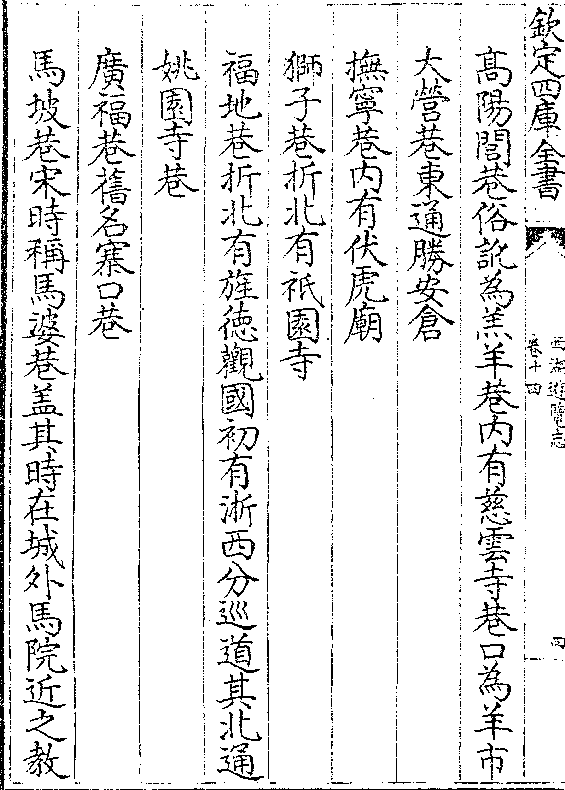 欽定四庫全書
西湖遊覽志
卷十四
四
髙陽閭巷俗訛為羔羊巷内有慈雲寺巷口為羊市
大營巷東通勝安倉
撫寧巷内有伏虎廟
獅子巷折北有祇園寺
福地巷折北有旌徳觀國初有浙西分巡道其北通
姚園寺巷
廣福巷舊名寨口巷
馬坡巷宋時稱馬婆巷盖其時在城外馬院近之教